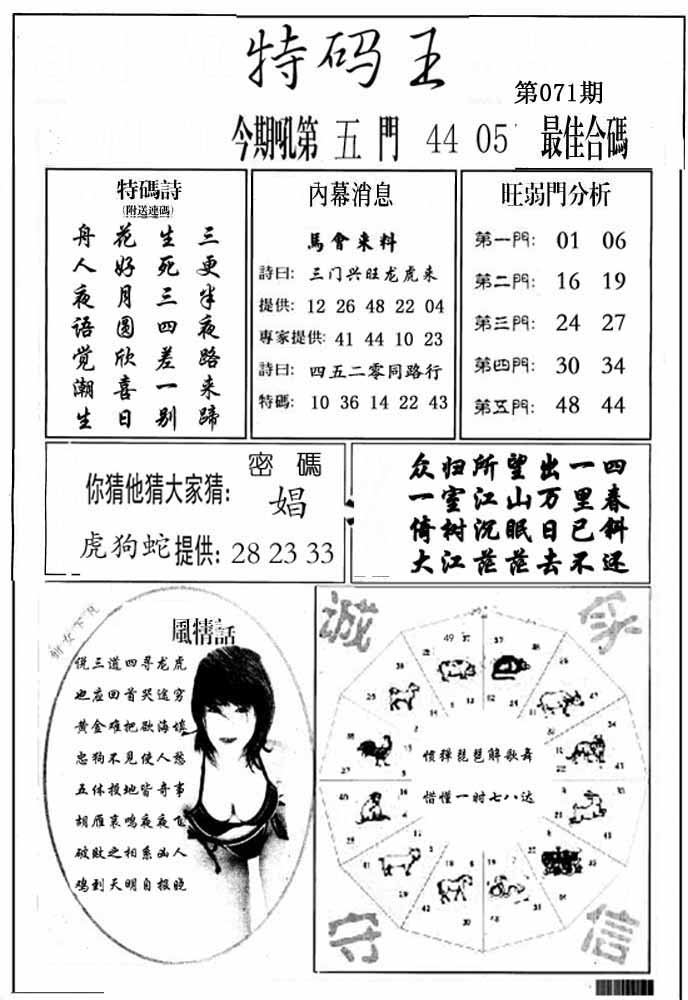 特码王
第071期
今期吼第 五 門 44 05 最佳合碼
特碼詩
(附送連碼)
三更半夜路来蹄
生死三四差一别
花好月圆欣喜日
舟人夜语觉潮生
內幕消息
馬會来料
詩曰: 三门兴旺龙虎来
提供: 12 26 48 22 04
專家提供: 41 44 10 23
詩曰: 四五二零同路行
特碼: 10 36 14 22 43
旺弱門分析
第一門: 01 06
第二門: 16 19
第三門: 24 27
第四門: 30 34
第五門: 48 44
密碼
你猜他猜大家猜: 娼
虎狗蛇 提供: 28 23 33
众归所望出一四
一室江山万里春
倚树沉眠日已斜
大江茫茫去不还
女下凡
風情話
三道四寻龙虎
也应回首哭途穷
黄金难把欲海填
忠狗不见使人愁
五体投地皆奇事
胡雁哀鸣夜夜飞
破败之相系凶人
鸡到天明自报晓
诚
守
信
惯弹琵琶解歌舞
惜懂一时七八达